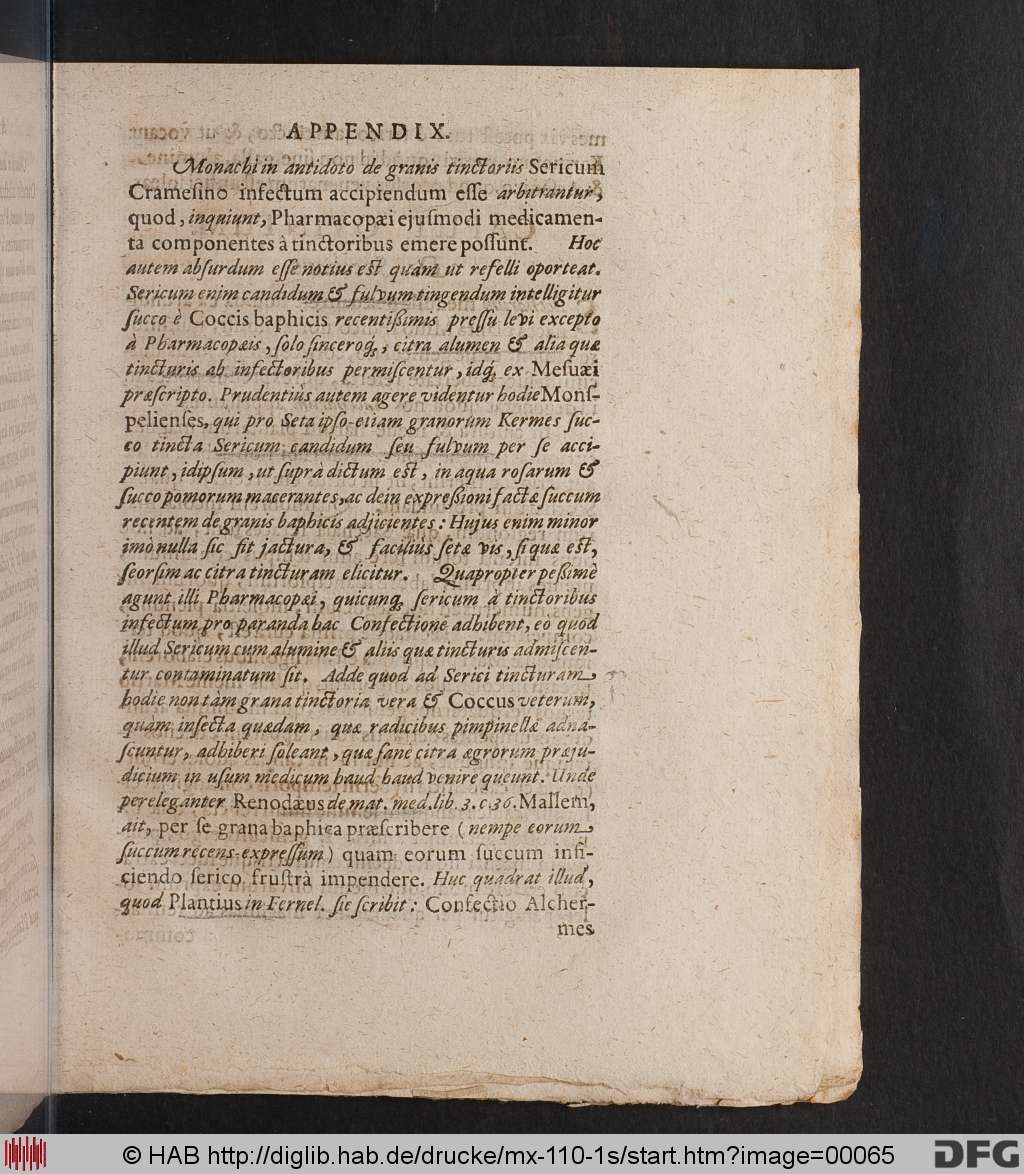 APPENDIX.
Monachi in antidoto de granis tinctoriis Sericum
Cramesino infectum accipiendum esse arbitrantur,
quod, inquiunt, Pharmacopæi ejusmodi medicamen-
ta componentes à tinctoribus emere possunt. Hoc
autem absurdum esse notius est quàm ut refelli oporteat.
Sericum enim candidum & fulvum tingendum intelligitur
succo è Coccis baphicis recentißimis pressu levi excepto
à Pharmacopæis, solo sinceroq;, citra alumen & alia quæ
tincturis ab infectoribus permiscentur, idq; ex Mesuæi
præscripto. Prudentiùs autem agere videntur hodie Mons-
pelienses, qui pro Seta ipso etiam granorum Kermes suc-
co tincta Sericum candidum seu fulvum per se acci-
piunt, idipsum, ut suprà dictum est, in aqua rosarum &
succo pomorum macerantes, ac dein expreßioni factæ succum
recentem de granis baphicis adjicientes: Hujus enim minor
imò nulla sic fit jactura, & faciliùs setæ vis, si qua est,
seorsim ac citra tincturam elicitur. Quapropter peßimè
agunt illi Pharmacopæi, quicunq; sericum à tinctoribus
infectum pro paranda hac Confectione adhibent, eò quod
illud Sericum cum alumine & aliis quæ tincturis admiscen-
tur contaminatum sit. Adde quod ad Serici tincturam
hodie non tàm grana tinctoria vera & Coccus veterum,
quàm insecta quædam, quæ radicibus pimpinellæ adna-
scuntur, adhiberi soleant, quæ sanè citra ægrorum præju-
dicium in usum medicum haud haud venire queunt. Unde
pereleganter Renodæus de mat. med. lib. 3. c. 36. Mallem,
ait, per se grana baphica præscribere (nempe eorum
succum recens expressum) quam eorum succum infi-
ciendo serico frustrà impendere. Huc quadrat illud,
quod Plantius in Fernel. sic scribit: Confectio Alcher-
mes
© HAB http://diglib.hab.de/drucke/mx-110-1s/start.htm?image=00065
DFG